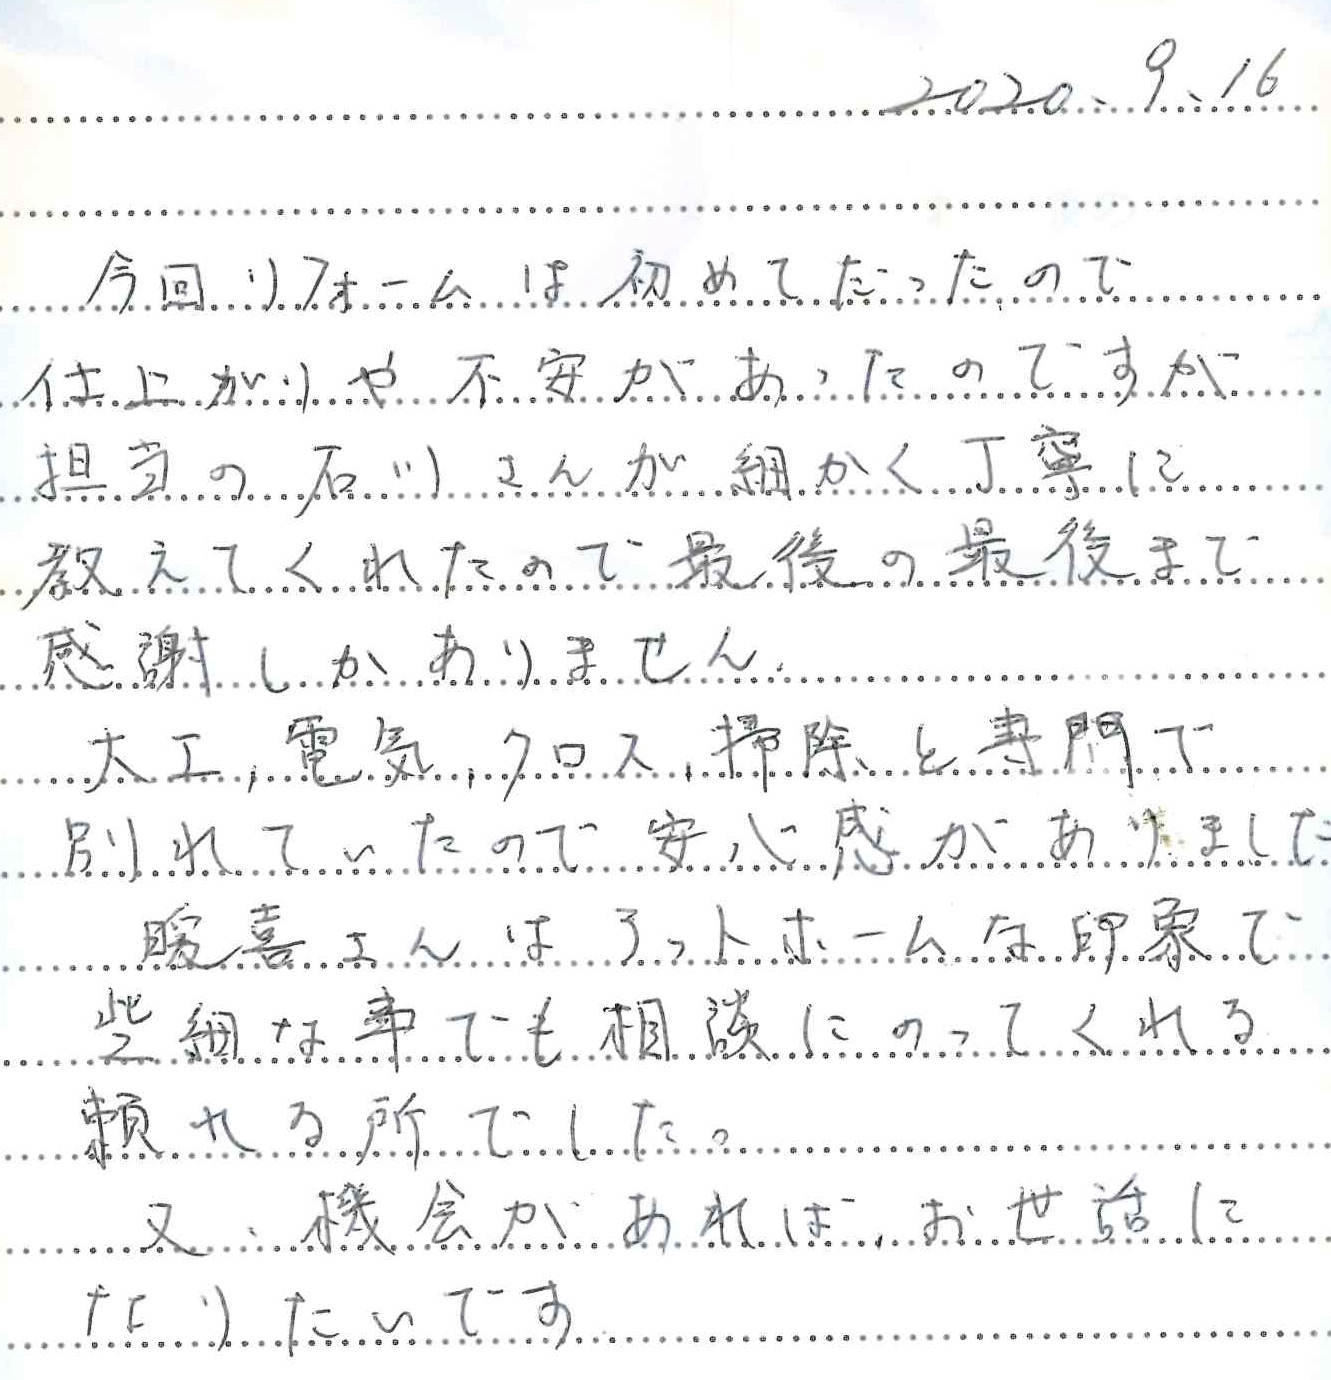 2020、9、16
今回リフォームは初めてだったので
仕上がりや不安があったのですが
担当の石川さんが細かく丁寧に
教えてくれたので最後の最後まで
感謝しかありません.
大工,電気,クロス,掃除、と専門で
別れていたので安心感がありました
暖喜さんはアットホームな印象で
些細な事でも相談にのってくれる
頼れる所でした。
又、機会があれば、お世話に
なりたいです